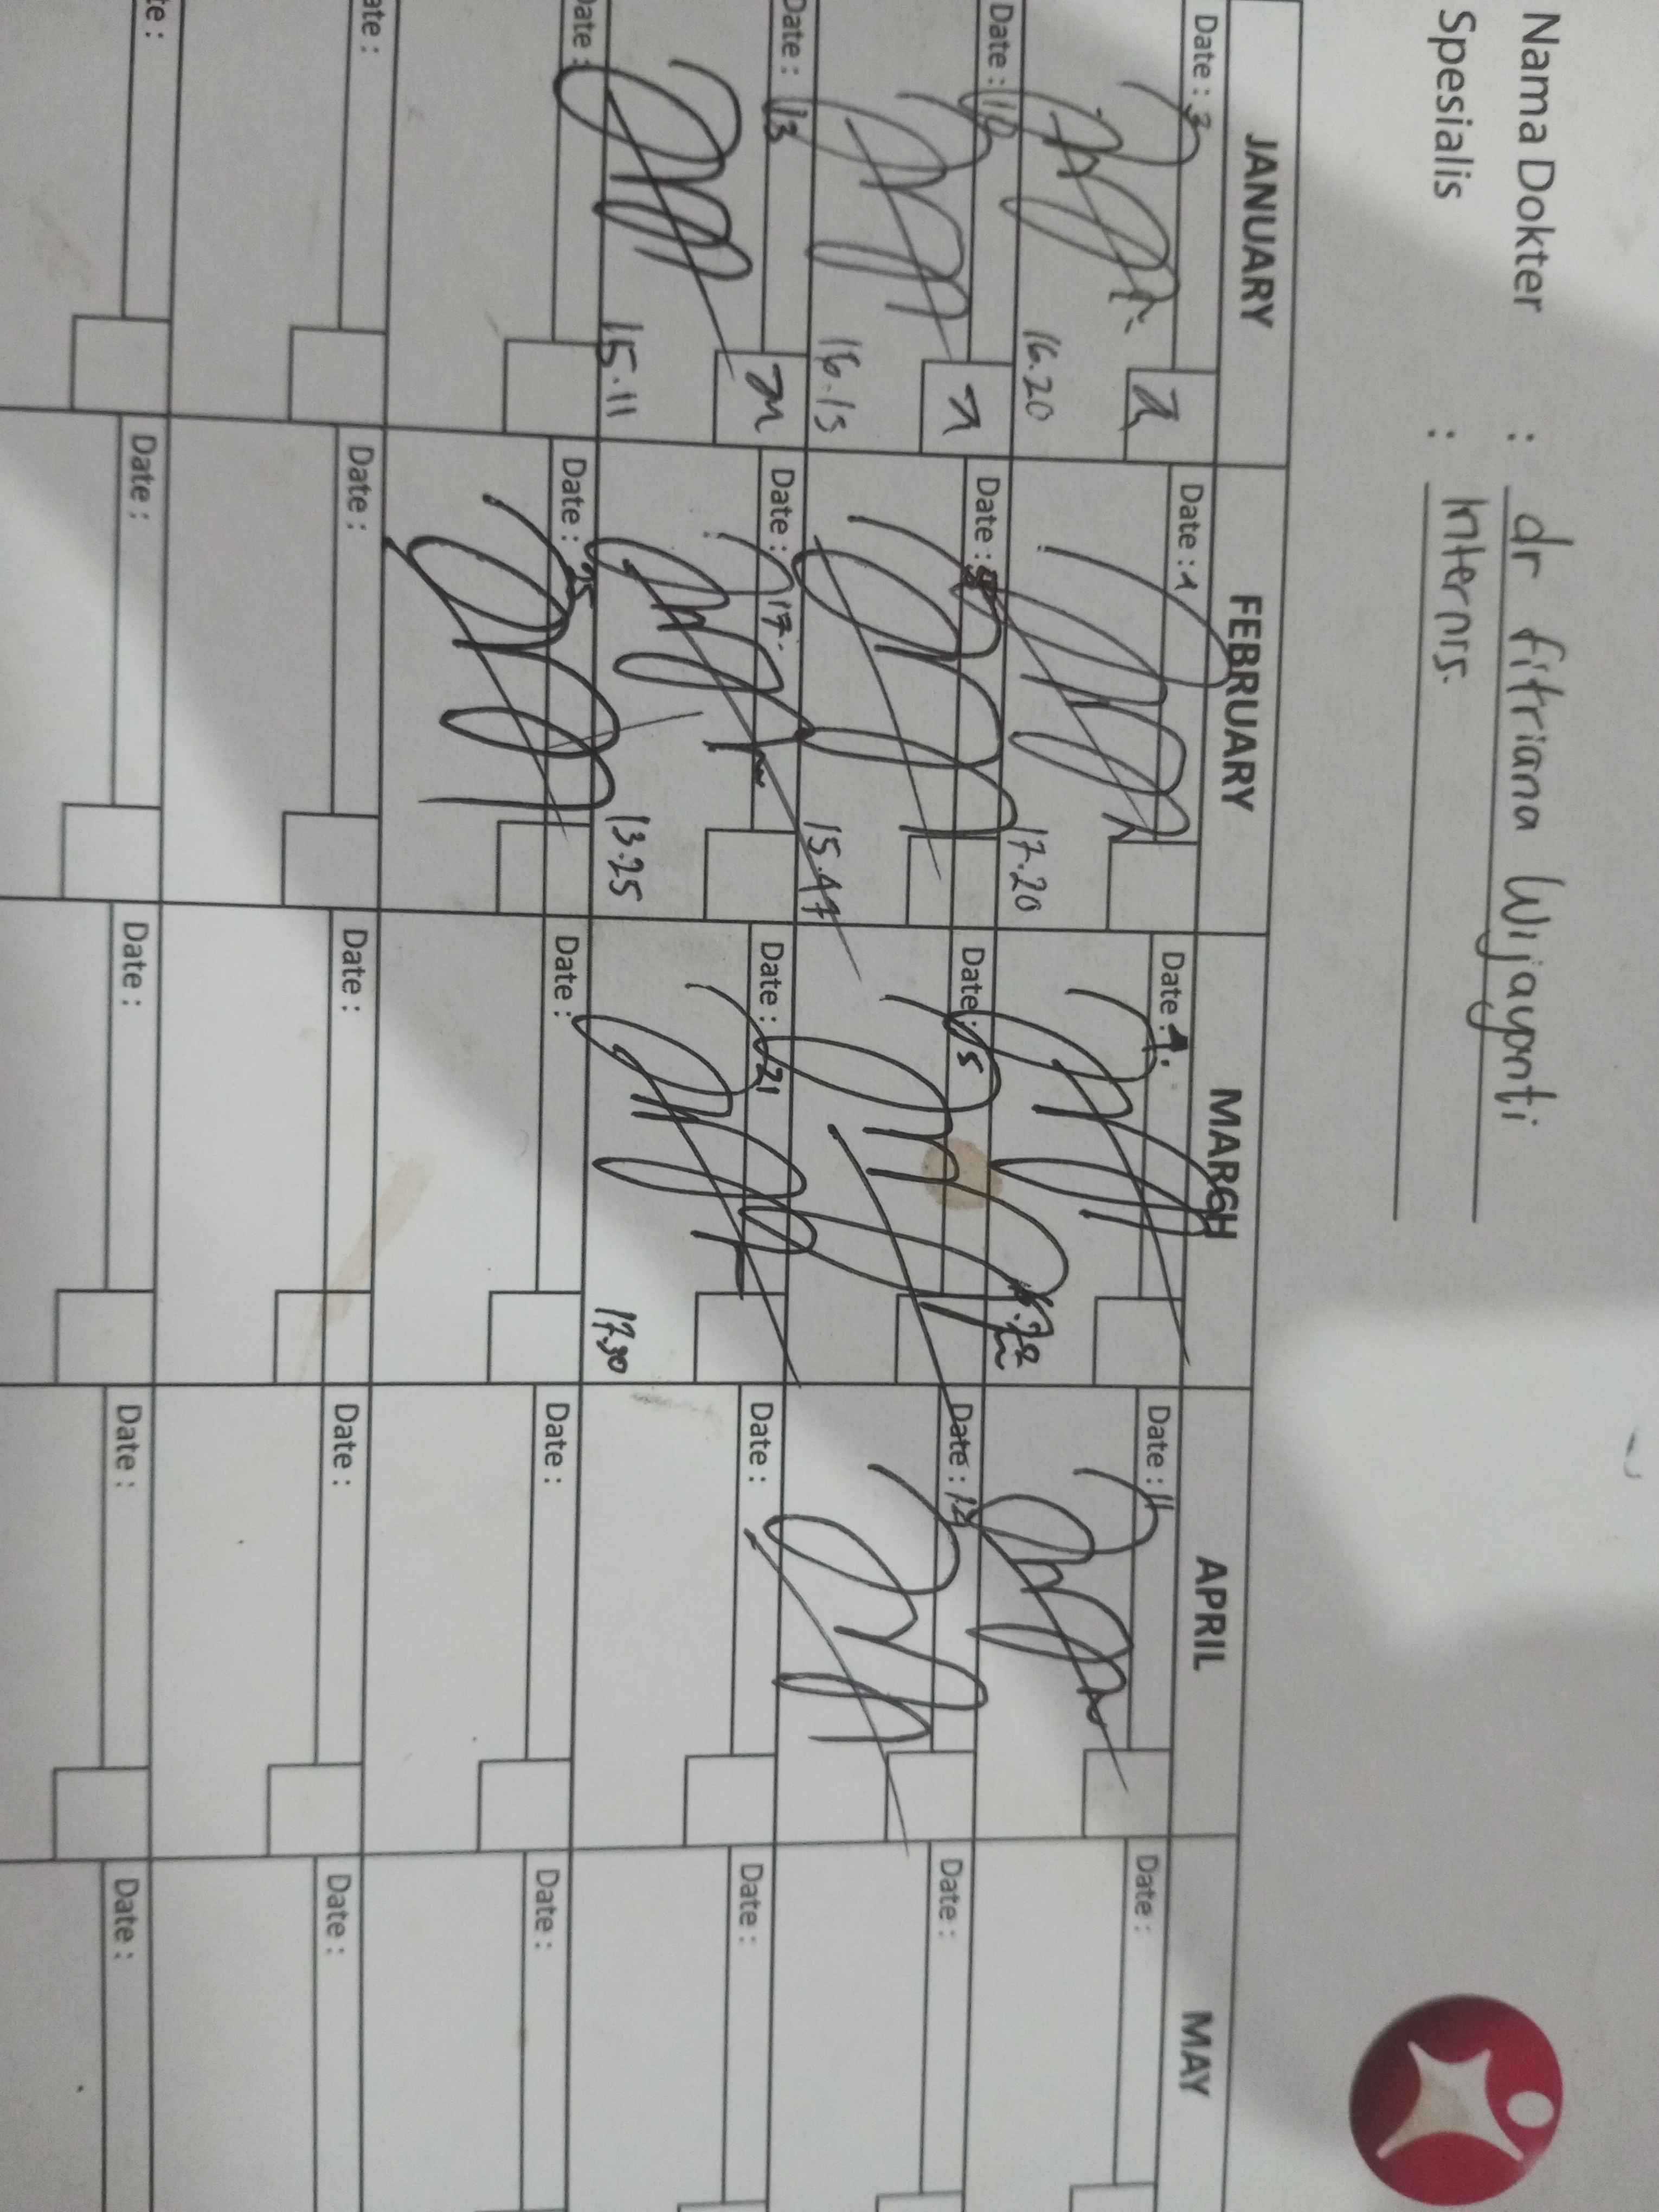 Nama Dokter : dr fitriana Wijayanti
Spesialis : Internis.
JANUARY FEBRUARY MARCH APRIL MAY
Date : 3 Date : 1 Date : Date : 11 Date :
16.20 17.20
Date : 10 Date : Date : 15 Date : Date :
16.15 15.47
Date : 13 Date : 17. Date : 21 Date : Date :
15.11 13.25 17.30
Date : Date : 25 Date : Date : Date :
ate : Date : Date : Date : Date :
te : Date : Date : Date : Date :